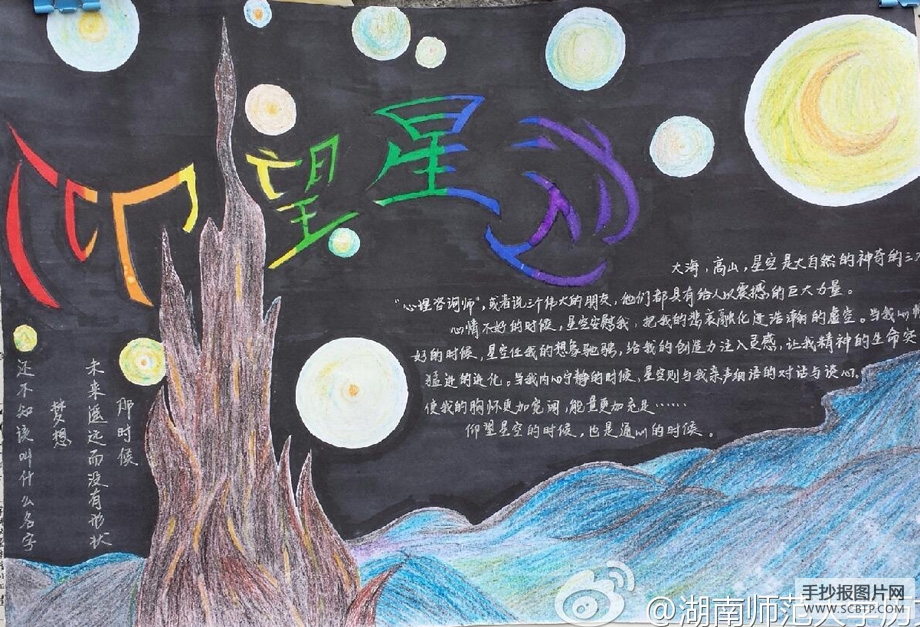 仰望星空
大海，高山，星空是大自然的神奇的三
"心理咨询师"，或者说三个伟大的朋友，他们都具有给人以震撼的巨大力量。
心情不好的时候，星空安慰我，把我的悲哀融化进浩瀚的虚空。当我心
好的时候，星空任我的想象驰骋，给我的创造力注入灵感，让我精神的生命突
猛进的进化。当我内心宁静的时候，星空则与我亲声细语的对话与谈心。
使我的胸怀更加宽阔，能量更加充足……
仰望星空的时候，也是通心的时候。
那时候
未来遥远而没有形状
梦想
还不知该叫什么名字
@湖南师范大学历
手抄报图片网
WWW.SCBTP.COM